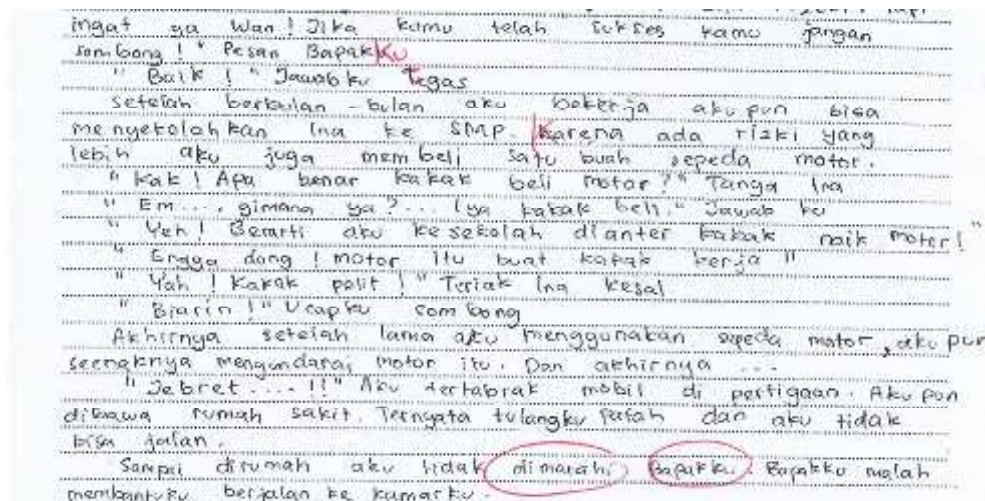 ingat ya Wan! Jika kamu telah sukses kamu jangan
sombong!" Pesan Bapakku
"Baik!" Jawabku tegas
setelah berbulan-bulan aku bekerja akupun bisa
menyekolahkan Ina ke SMP. Karena ada rizki yang
lebih aku juga membeli satu buah sepeda motor.
"Kak! Apa benar kakak beli motor?" Tanya Ina
"Em...., gimana ya?... Iya kakak beli." Jawab ku
"Yeh! Berarti aku kesekolah dianter kakak naik motor!"
"Engga dong! motor itu buat kakak kerja"
"Yah! Kakak pelit!" Teriak Ina kesal
"Biarin!" Ucapku sombong
Akhirnya setelah lama aku menggunakan sepeda motor, aku pun
seenaknya mengendarai motor itu. Dan akhirnya ...
"Jebret....!!" Aku tertabrak mobil di pertigaan. Aku pun
dibawa rumah sakit. Ternyata tulangku patah dan aku tidak
bisa jalan.
Sampai dirumah aku tidak dimarahi Bapakku. Bapakku malah
membantuku berjalan ke kamarku.